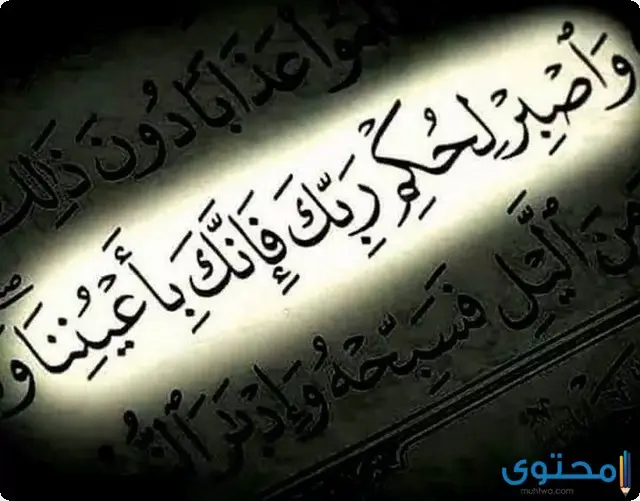 عَذَابًا دُونَ ذَٰلِكَ
وَٱصْبِرْ لِحُكْمِ رَبِّكَ فَإِنَّكَ بِأَعْيُنِنَا
ٱلَّيْلِ فَسَبِّحْهُ وَإِدْبَٰرَ
محتوى
muhtwa.com